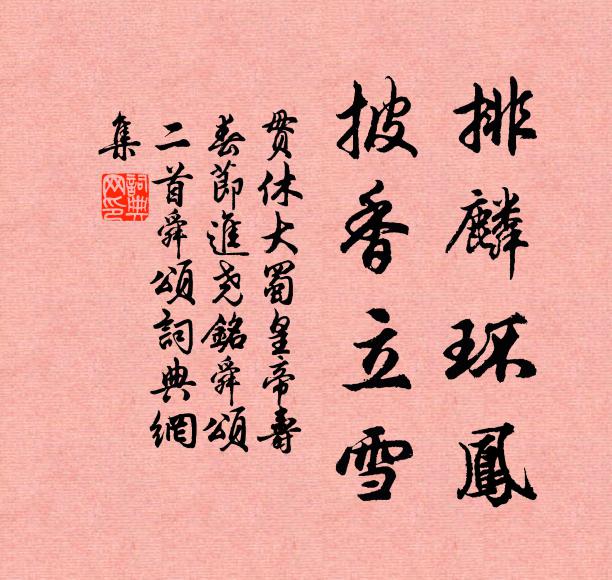 排麟环鳳
披香立雪
貫休大蜀皇帝壽
春節進尧銘舜頌
二首舜頌詞典網
集
詞典
网印